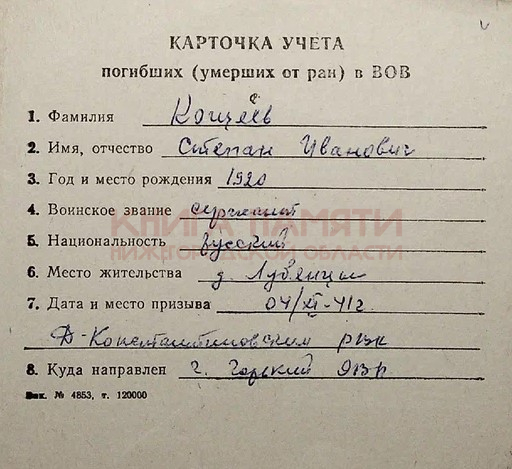 КАРТОЧКА УЧЕТА
погибших (умерших от ран) в ВОВ
1. Фамилия Кощеев
2. Имя, отчество Степан Иванович
3. Год и место рождения 1920
4. Воинское звание сержант
КНИГА ПАМЯТИ
5. Национальность русский
НИЖЕГОРОДСКОЙ ОБЛАСТИ
6. Место жительства д. Лубянцы
7. Дата и место призыва 04/XI-41г.
Д-Константиновским РВК
8. Куда направлен г. Горький
Зак. № 4853, т. 120000